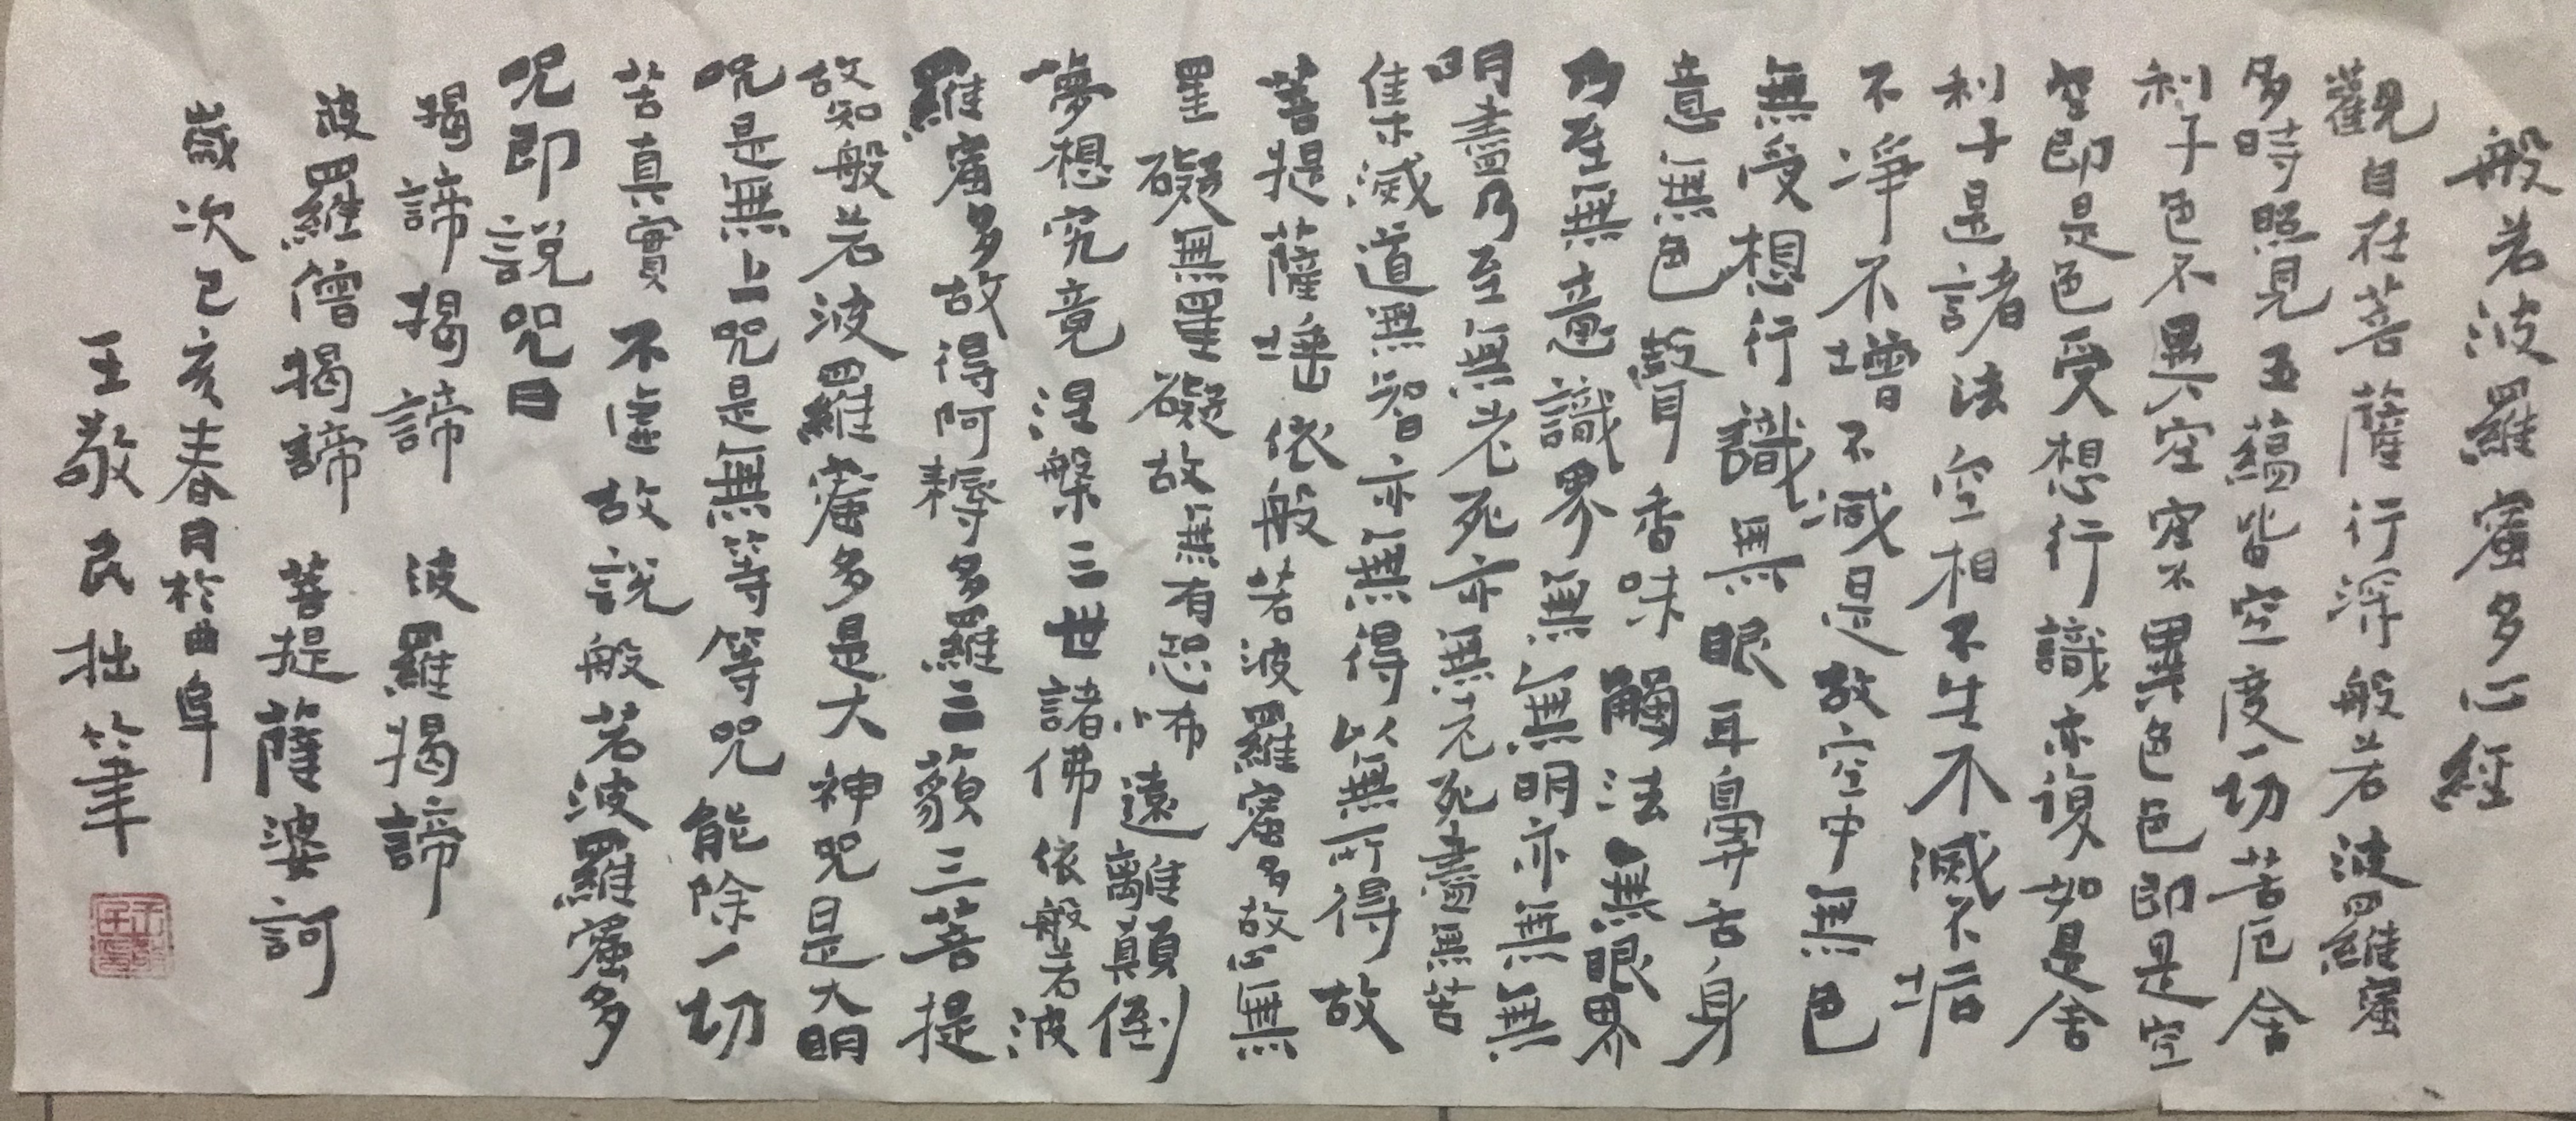 般若波羅蜜多心經
觀自在菩薩行深般若波羅蜜
多時照見五蘊皆空度一切苦厄舍
利子色不異空空不異色色即是空
空即是色受想行識亦復如是舍
利子是諸法空相不生不滅不垢
不淨不增不減是故空中無色
無受想行識無眼耳鼻舌身
意無色聲香味觸法無眼界
乃至無意識界無無明亦無無
明盡乃至無老死亦無老死盡無苦
集滅道無智亦無得以無所得故
菩提薩埵依般若波羅蜜多故心無
罣礙無罣礙故無有恐怖遠離顛倒
夢想究竟涅槃三世諸佛依般若波
羅蜜多故得阿耨多羅三藐三菩提
故知般若波羅蜜多是大神咒是大明
咒是無上咒是無等等咒能除一切
苦真實不虛故說般若波羅蜜多
咒即說咒曰
揭諦揭諦 波羅揭諦
波羅僧揭諦 菩提薩婆訶
歲次己亥春月於曲阜
王敬民拙筆